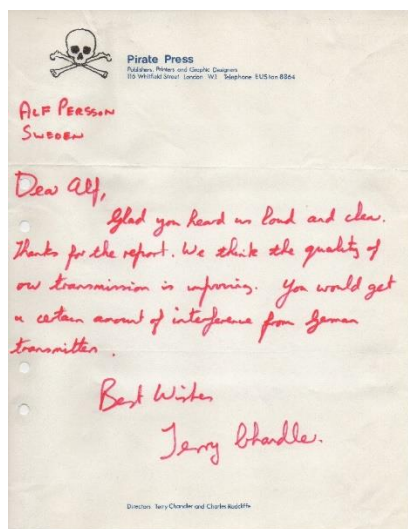 Pirate Press
Publishers, Printers and Graphic Designers
116 Whitfield Street London W.1 Telephone EUSton 8864
ALF PERSSON
SWEDEN
Dear Alf,
Glad you heard us loud and clear.
Thanks for the report. We think the quality of
our transmission is improving. You would get
a certain amount of interference from German
transmitters.
Best Wishes
Terry Chandler.
Directors Terry Chandler and Charles Radcliffe